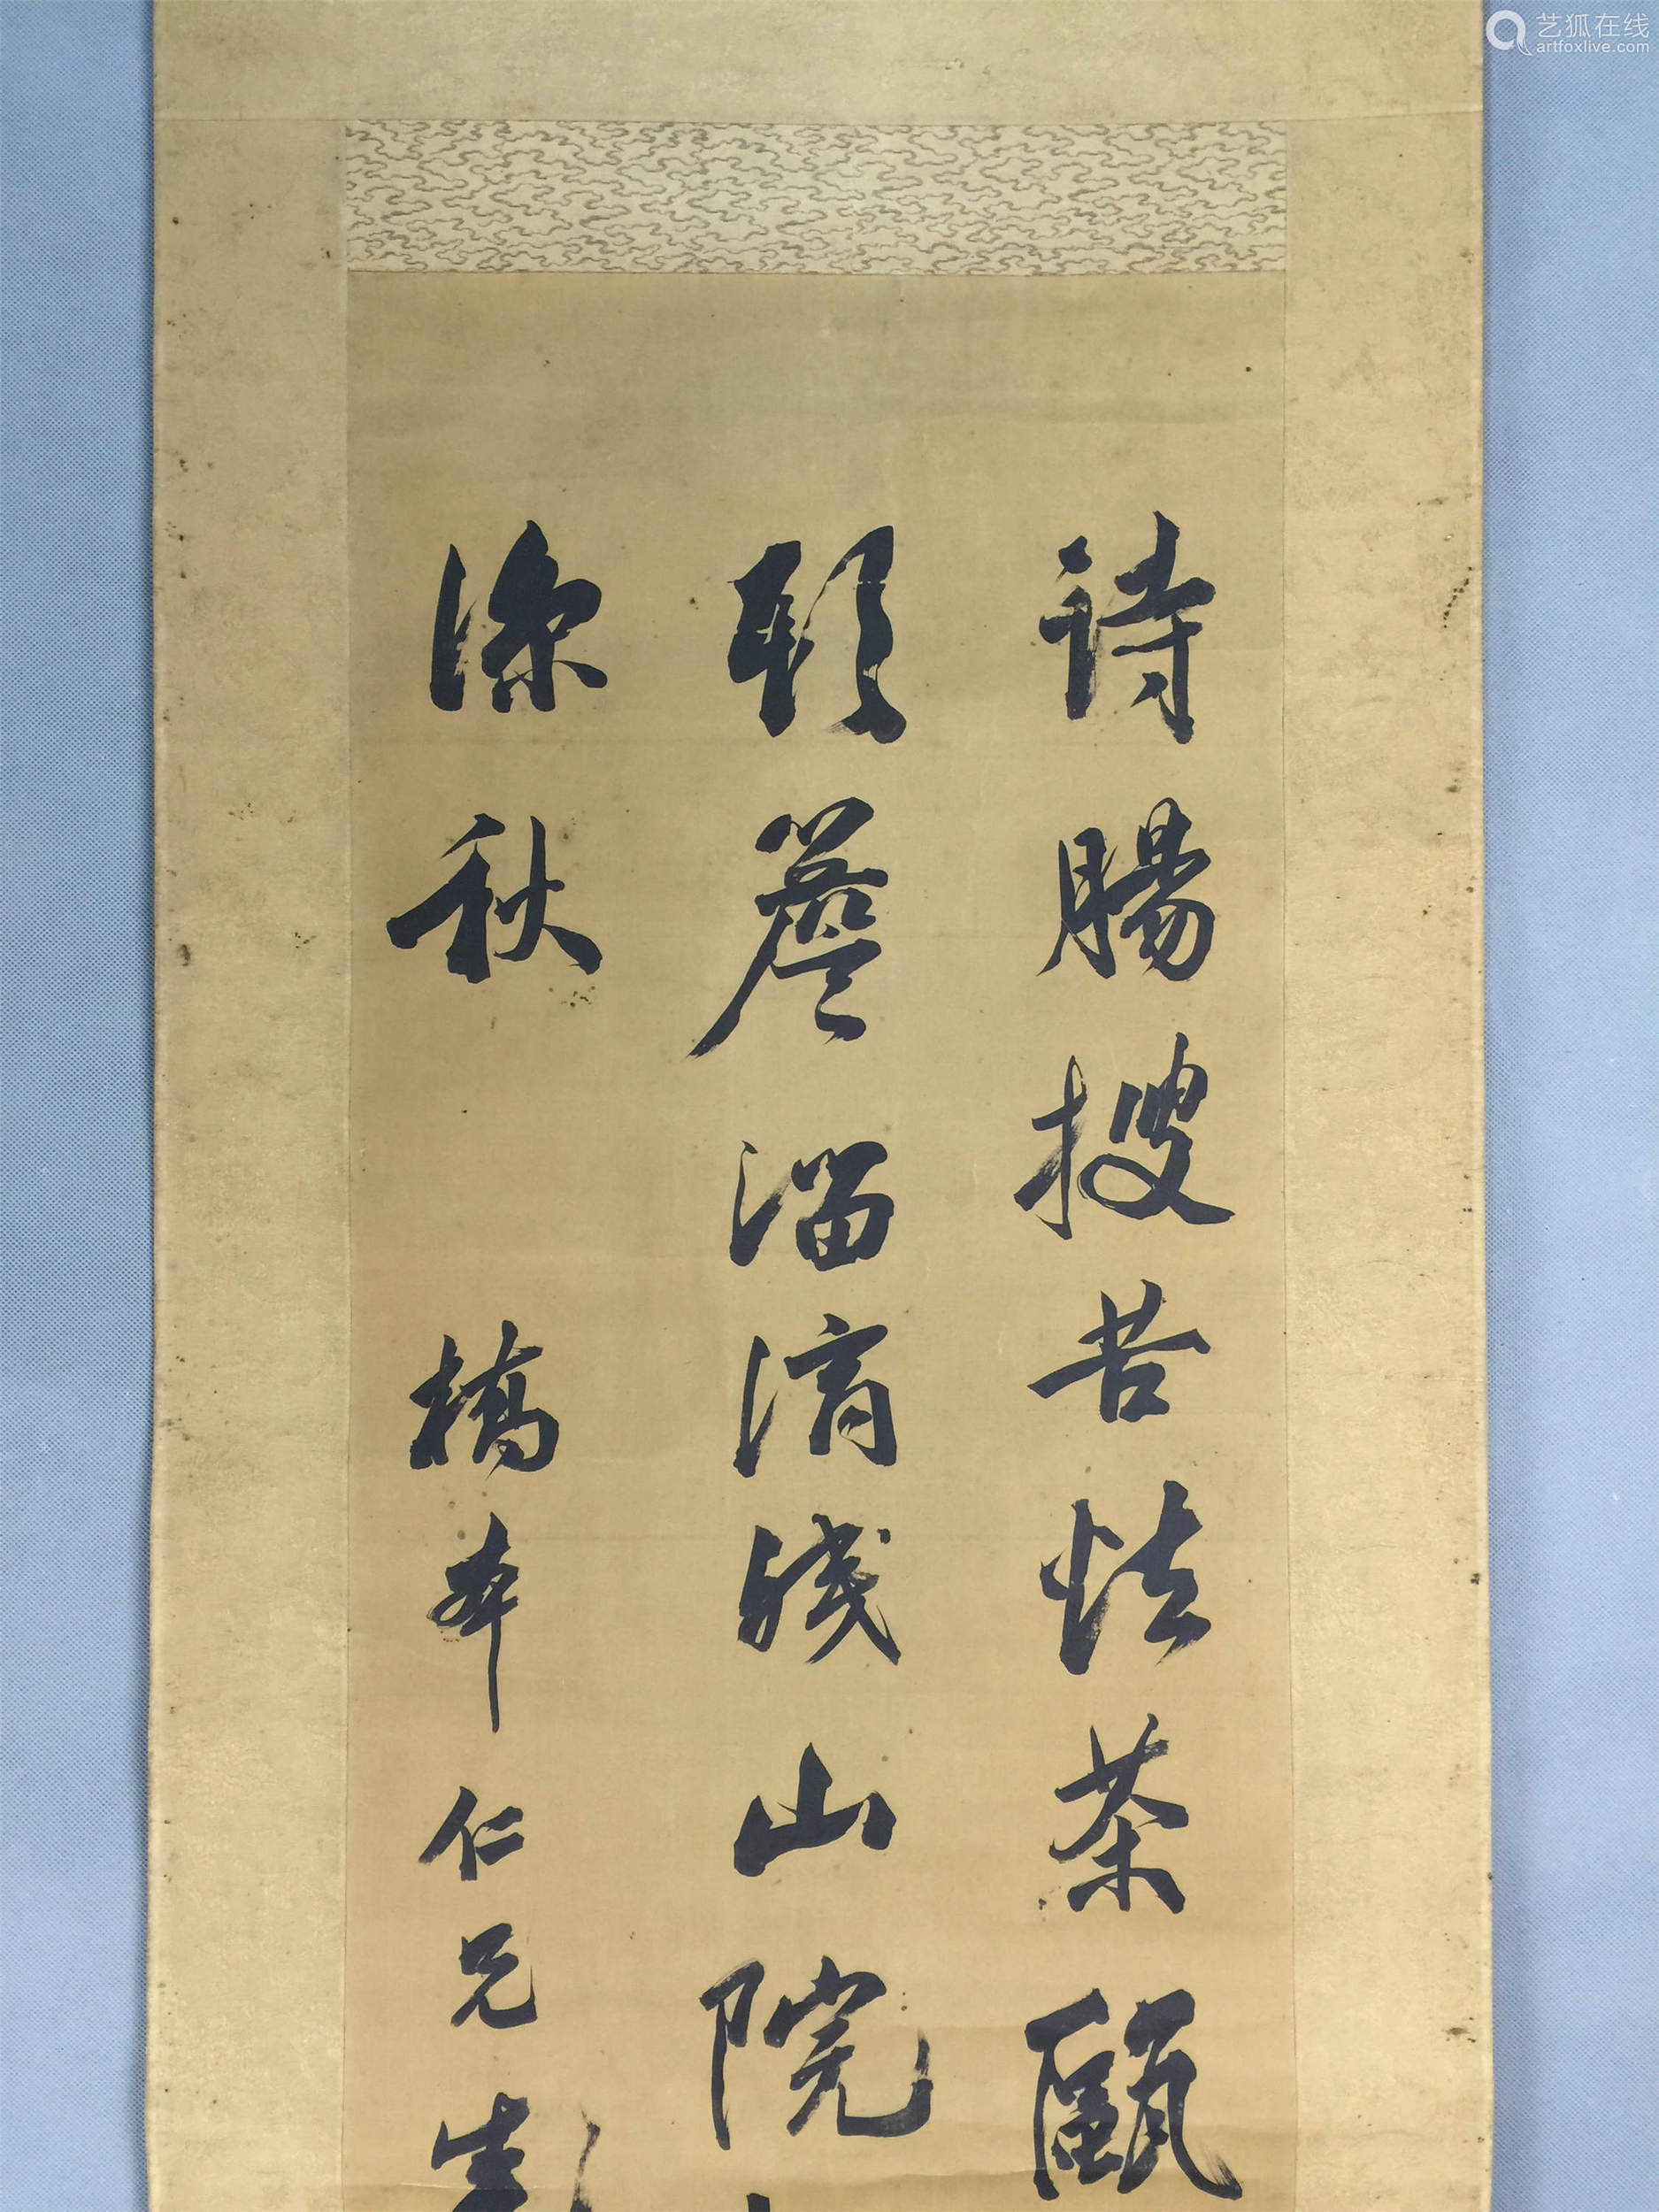 艺狐在线
artfoxlive.com
詩腸搜苦怯茶甌
頭簷溜滴殘山院
深秋 橋本仁兄